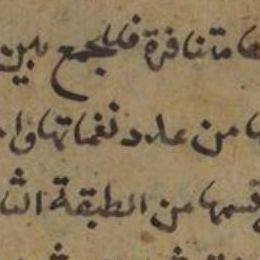 متنافرة فالجمع بين
ها من عدد نغماتها وا
قسمها من الطبقة الثا